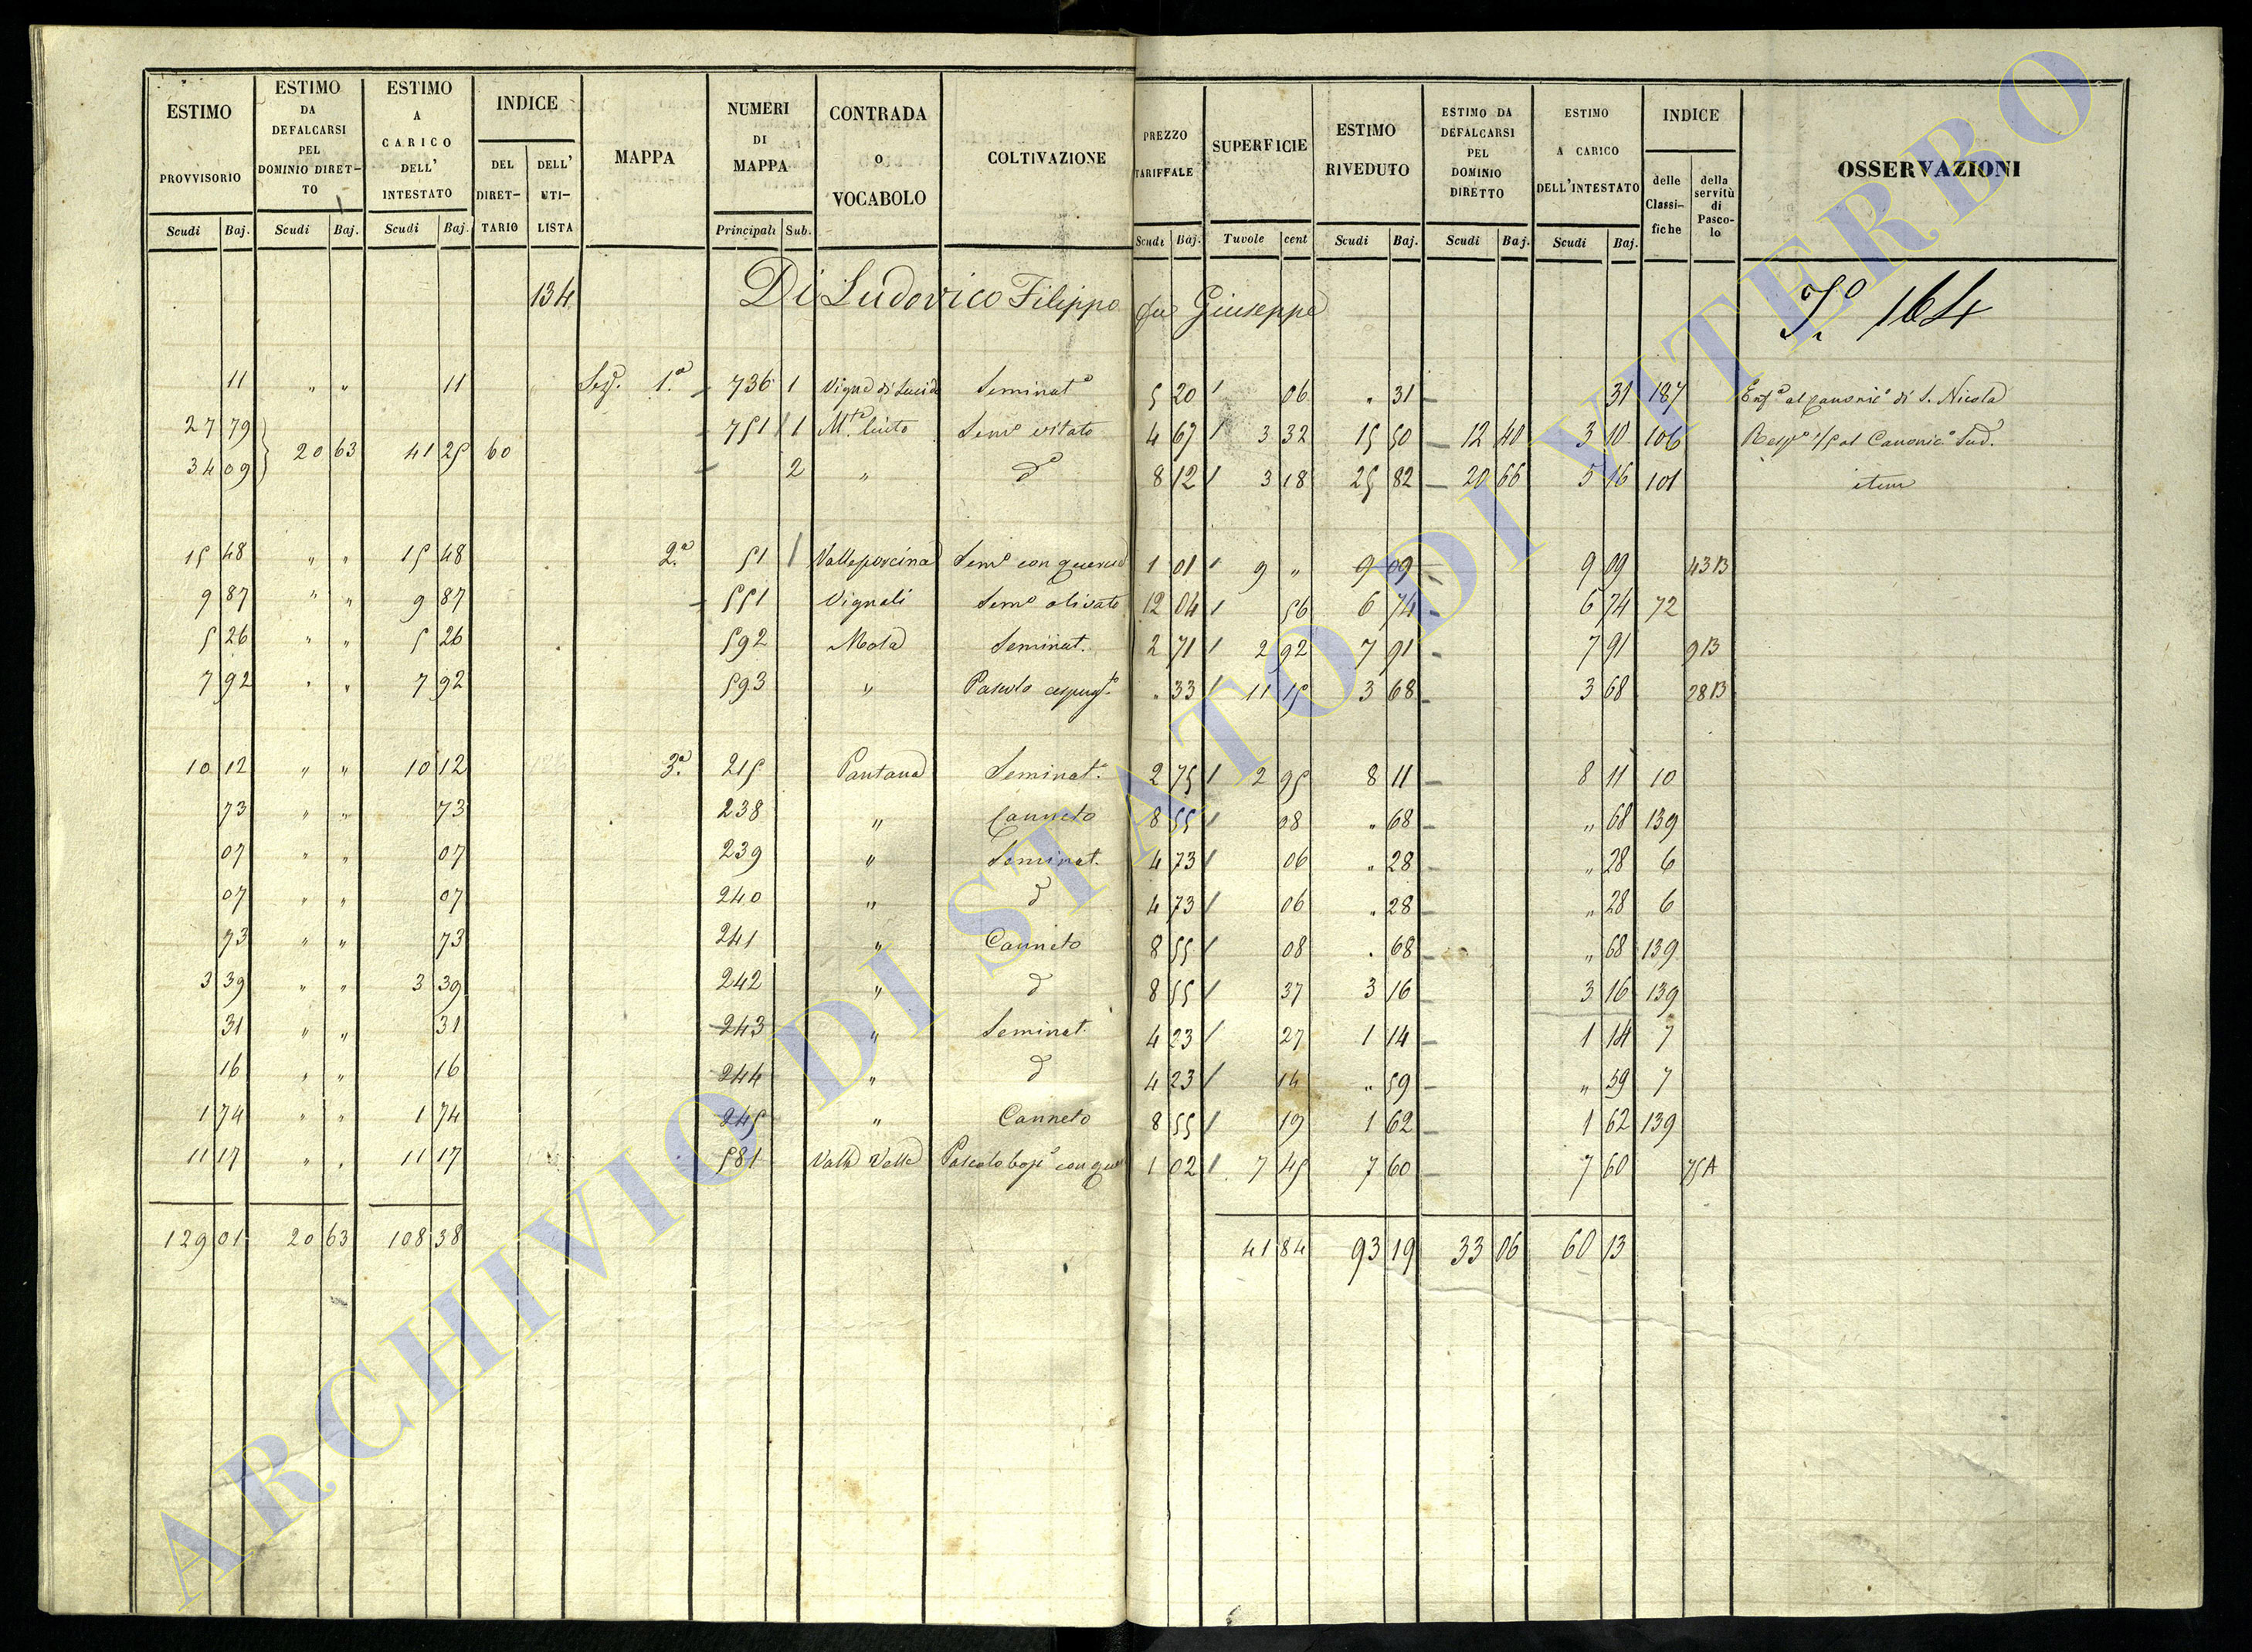 ESTIMO PROVVISORIO Scudi Baj. ESTIMO DA DEFALCARSI PEL DOMINIO DIRET-TO Scudi Baj. ESTIMO A CARICO DELL' INTESTATO Scudi Baj. INDICE DEL DIRET-TARIO DELL' UTI-LISTA MAPPA NUMERI DI MAPPA Principali Sub. CONTRADA O VOCABOLO COLTIVAZIONE PREZZO TARIFFALE Scudi Baj. SUPERFICIE Tavole cent ESTIMO RIVEDUTO Scudi Baj. ESTIMO DA DEFALCARSI PEL DOMINIO DIRETTO Scudi Baj. ESTIMO A CARICO DELL'INTESTATO Scudi Baj. INDICE delle Classi-fiche della servitù di Pasco-lo OSSERVAZIONI
134 Di Ludovico Filippo fu Giuseppe 164
11 " " 11 Sez. 1.a 736 1 Vigna di Lucida Seminato 5 20 06 " 31 31 187 Enfo al Canonico di S. Nicola
27 79 20 63 41 25 60 751 1 Semo vitato 4 67 3 32 15 50 12 40 3 10 106 1/5 al Canonico Sud.
34 09 2 " do 8 12 3 18 25 82 20 66 5 16 101 item
15 48 " " 15 48 2.a 51 Valleporcina Semo con querce 1 01 9 " 9 09 9 09 43 B
9 87 " " 9 87 551 Vignali Semo olivato 12 04 56 6 74 6 74 72
5 26 " " 5 26 592 Mola Seminat. 2 71 2 92 7 91 7 91 9 B
7 92 " " 7 92 593 " Pascolo cespugo " 33 11 15 3 68 3 68 28 B
10 12 " " 10 12 3.a 215 Pantana Seminato 2 75 2 95 8 11 8 11 10
73 " " 73 238 " Canneto 8 55 08 " 68 " 68 139
07 " " 07 239 " Seminat. 4 73 06 " 28 " 28 6
07 " " 07 240 " d 4 73 06 " 28 " 28 6
73 " " 73 241 " Canneto 8 55 08 " 68 " 68 139
3 39 " " 3 39 242 " d 8 55 37 3 16 3 16 139
31 " " 31 243 " Seminat. 4 23 27 1 14 1 14 7
16 " " 16 244 " d 4 23 14 " 59 " 59 7
1 74 " " 1 74 245 " Canneto 8 55 19 1 62 1 62 139
11 17 " " 11 17 581 Valle Pascolo con que 1 02 7 45 7 60 7 60 75 A
129 01 20 63 108 38 41 84 93 19 33 06 60 13
ARCHIVIO DI STATO DI VITERBO